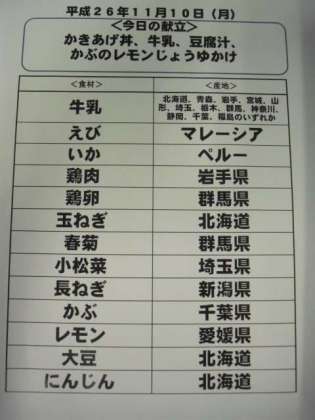 平成２６年１１月１０日（月）
＜今日の献立＞
かきあげ丼、牛乳、豆腐汁、
かぶのレモンじょうゆかけ
＜食材＞ ＜産地＞
牛乳 北海道、青森、岩手、宮城、山
形、埼玉、栃木、群馬、神奈川、
静岡、千葉、福島のいずれか
えび マレーシア
いか ペルー
鶏肉 岩手県
鶏卵 群馬県
玉ねぎ 北海道
春菊 群馬県
小松菜 埼玉県
長ねぎ 新潟県
かぶ 千葉県
レモン 愛媛県
大豆 北海道
にんじん 北海道